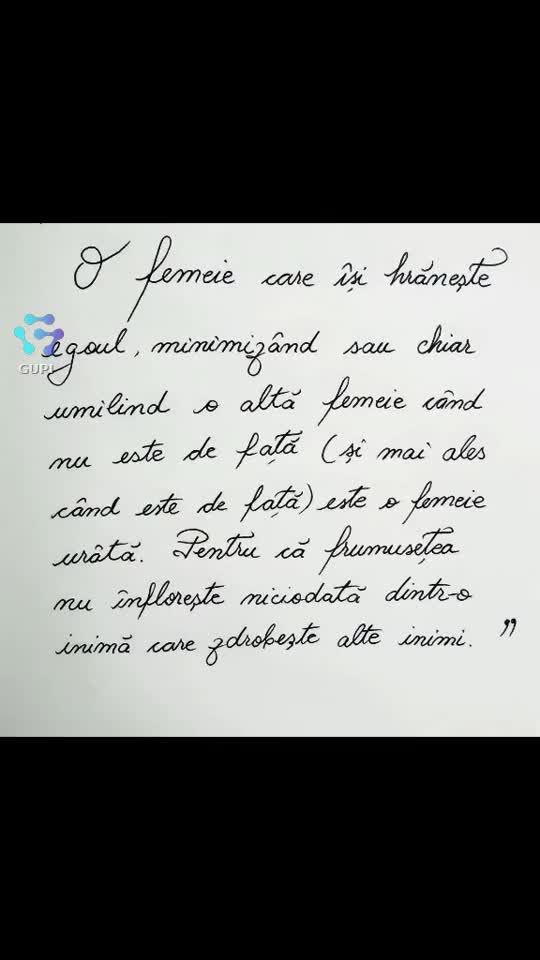 O femeie care își hrănește
egoul, minimizând sau chiar
GUPI
umilind o altă femeie când
nu este de față (și mai ales
când este de față) este o femeie
urâtă. Pentru că frumusețea
nu înflorește niciodată dintr-o
inimă care zdrobește alte inimi. "